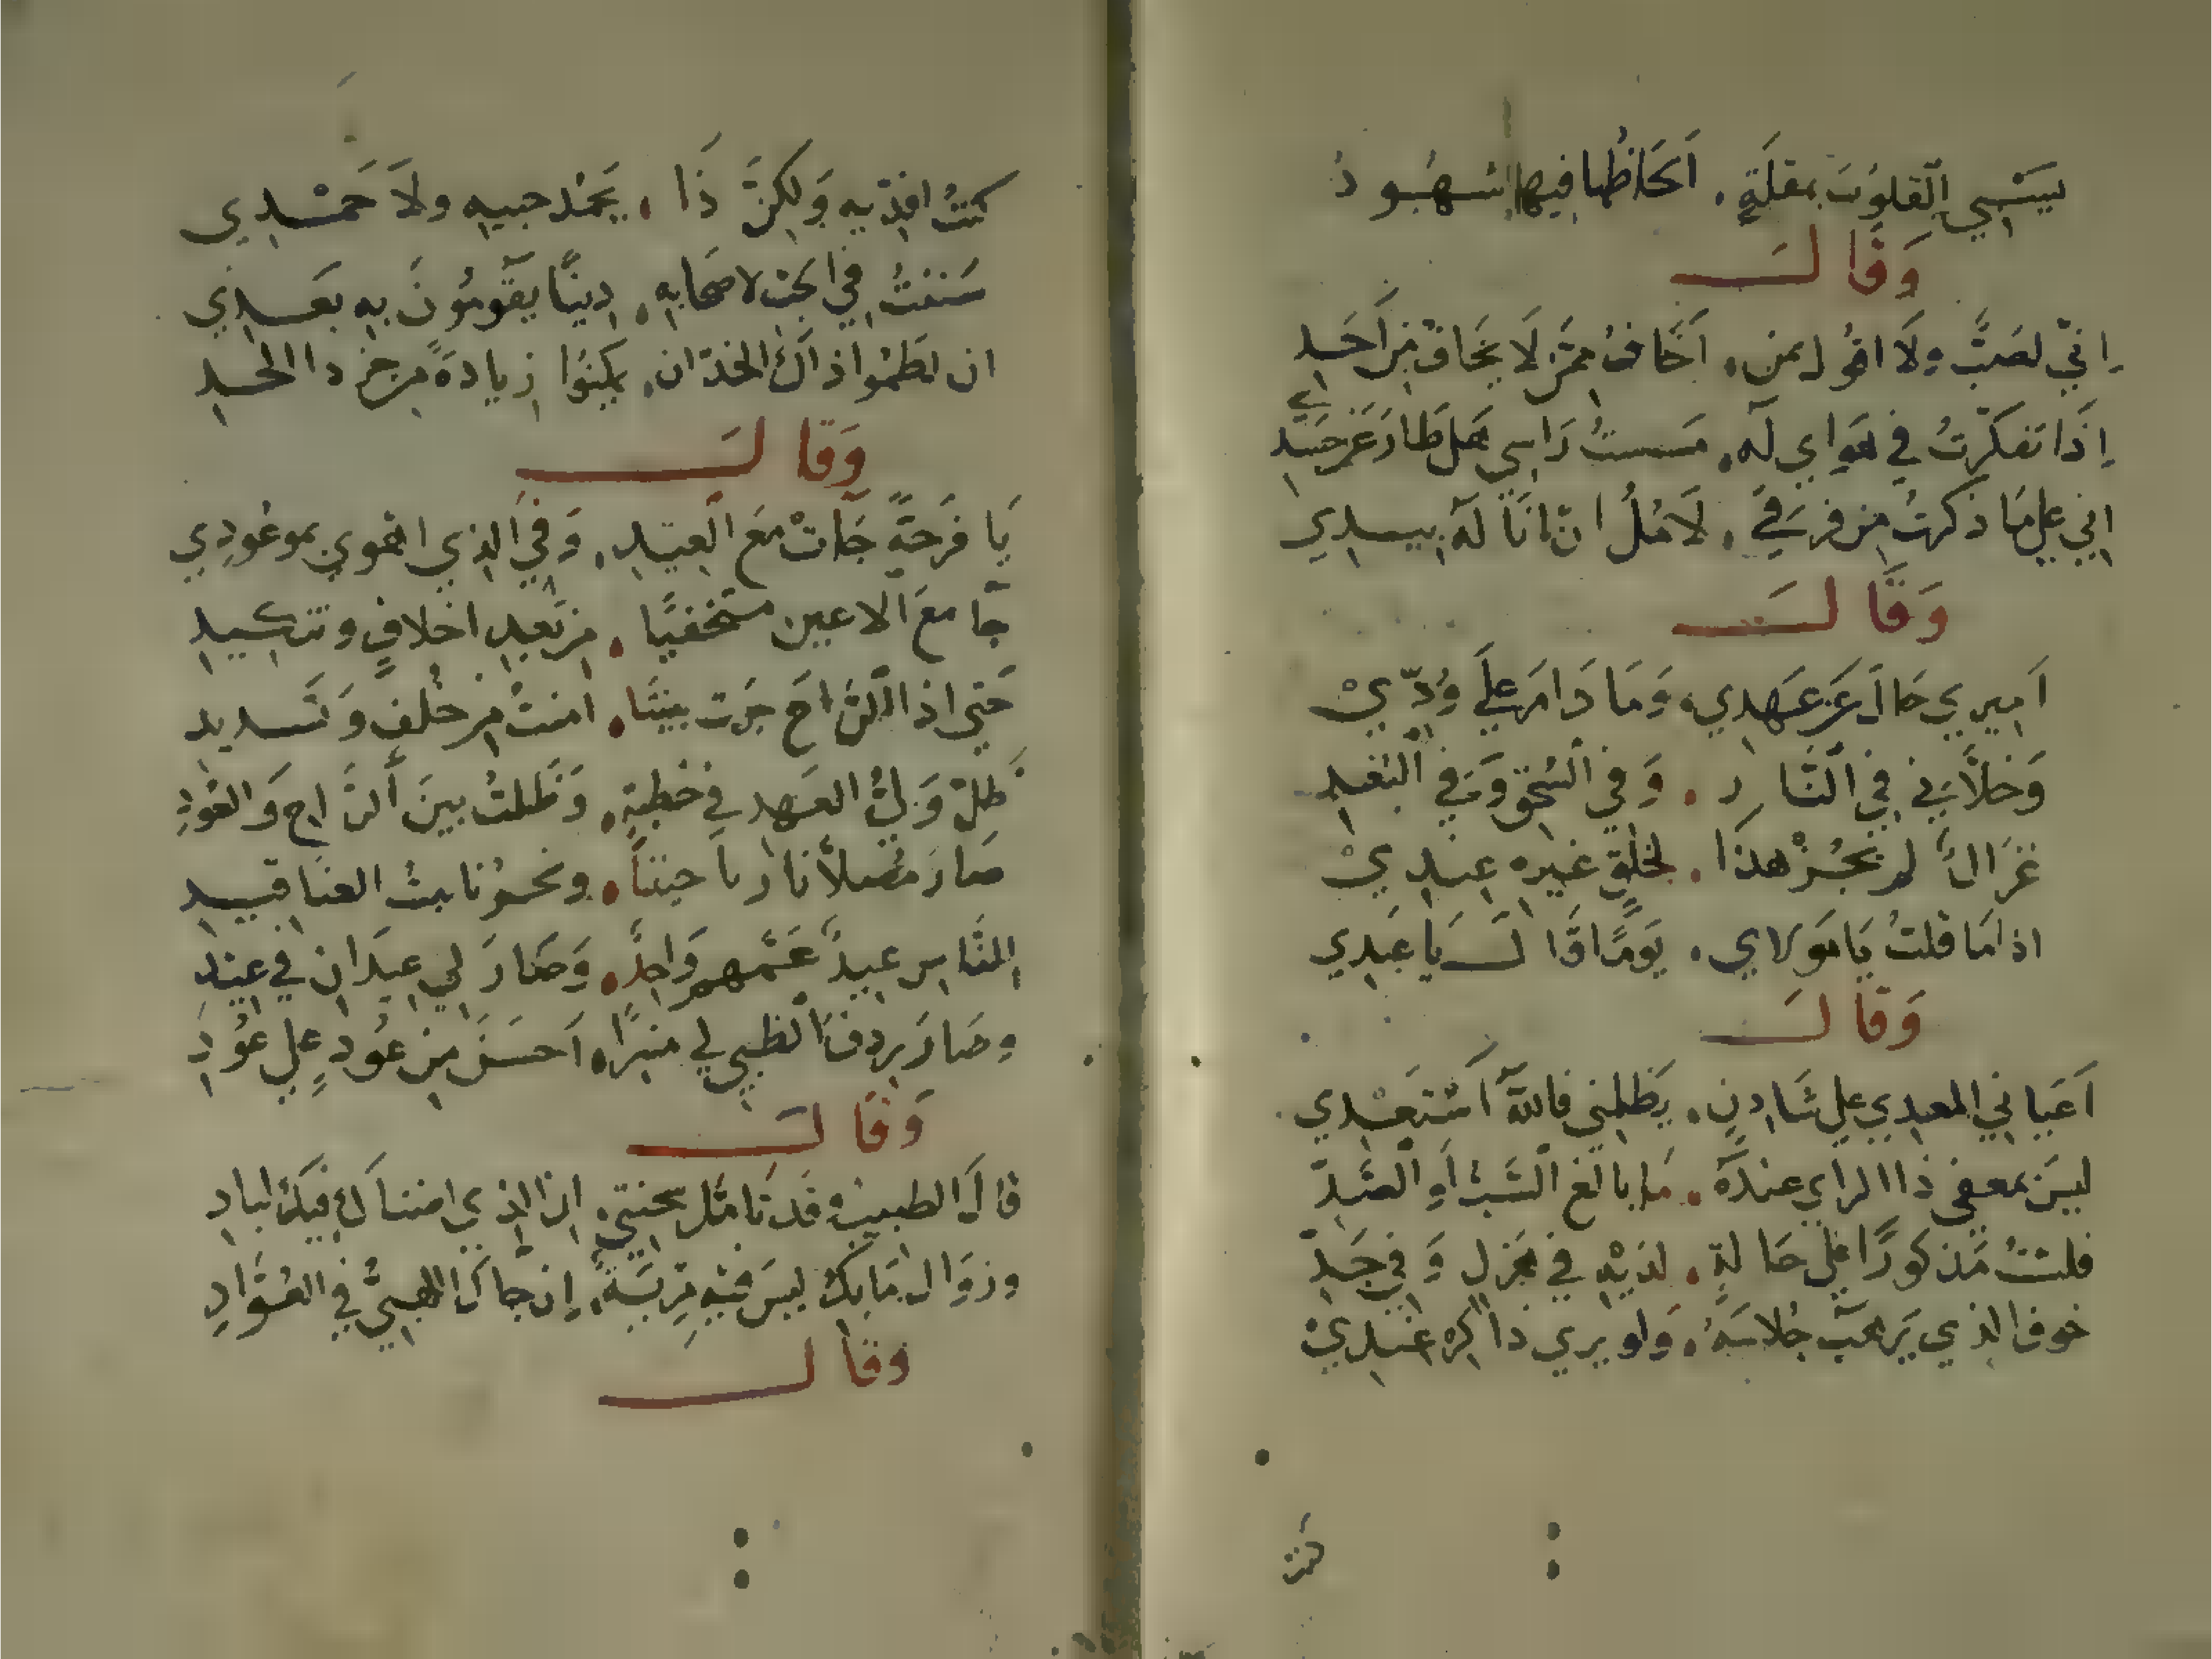 يسبي القلوب بمقلة . الحاظها فيها شهود
وقال
اني لصب ولا اقول بمن . اخاف ممن لا يخاف من احد
اذا تفكرت في هواي له . مسست راسي هل طار عن جسدي
اني على ما ذكرت من فرقي . لامل ان انا له بيدي
وقال
اميري حال عن عهدي . وما دام على ودي
وخلاني في النار . وفي السحق وفي البعد
غزال لم يجز هذا . لخلق غيره عندي
اذا ما قلت يا مولاي . يوما قال يا عبدي
وقال
اعياني المعدي على شادن . يظلمني فالله استعدي
ليس بمعفى ذا الراي عنده . ما بالغ السب او الصد
فلست مذكورا على حالة . لديه في هزل وفي جد
خوف الذي يرهب جلاسه . ولو يرى ذاكره عندي
كنت
كنت افديه ولكن ذا . يحمد حبيه ولا حمدي
سننت في الحب لاصحابه . دينا يقومون به بعدي
ان لطموا اذ اك الخدان . يكنوا زيادة من خر ذا الحد
وقال
يا فرحة جات مع العيد . وفى الذي اهوى بموعودي
جا مع الاعين مستخفيا . من بعد اخلاف وتنكيد
حتى اذا الراح جرت بيننا . امنت من خلف وتسديد
ظل ولي العهد في خطبة . وظلت بين الراح والعود
صار مصلانا رياحيننا . ونحونا بنت العناقيد
للناس عيد عمهم واحد . وصار لي عيدان في عيد
وصار ردف الظبي لي منبرا . احسن من عود على عود
وقال
قال الطبيب وقد تامل سحنتي . ان الذي اضناك فيك لباد
وزوال ما بك ليس فيه مرية . ان جاك الهسي في العواد
وقال